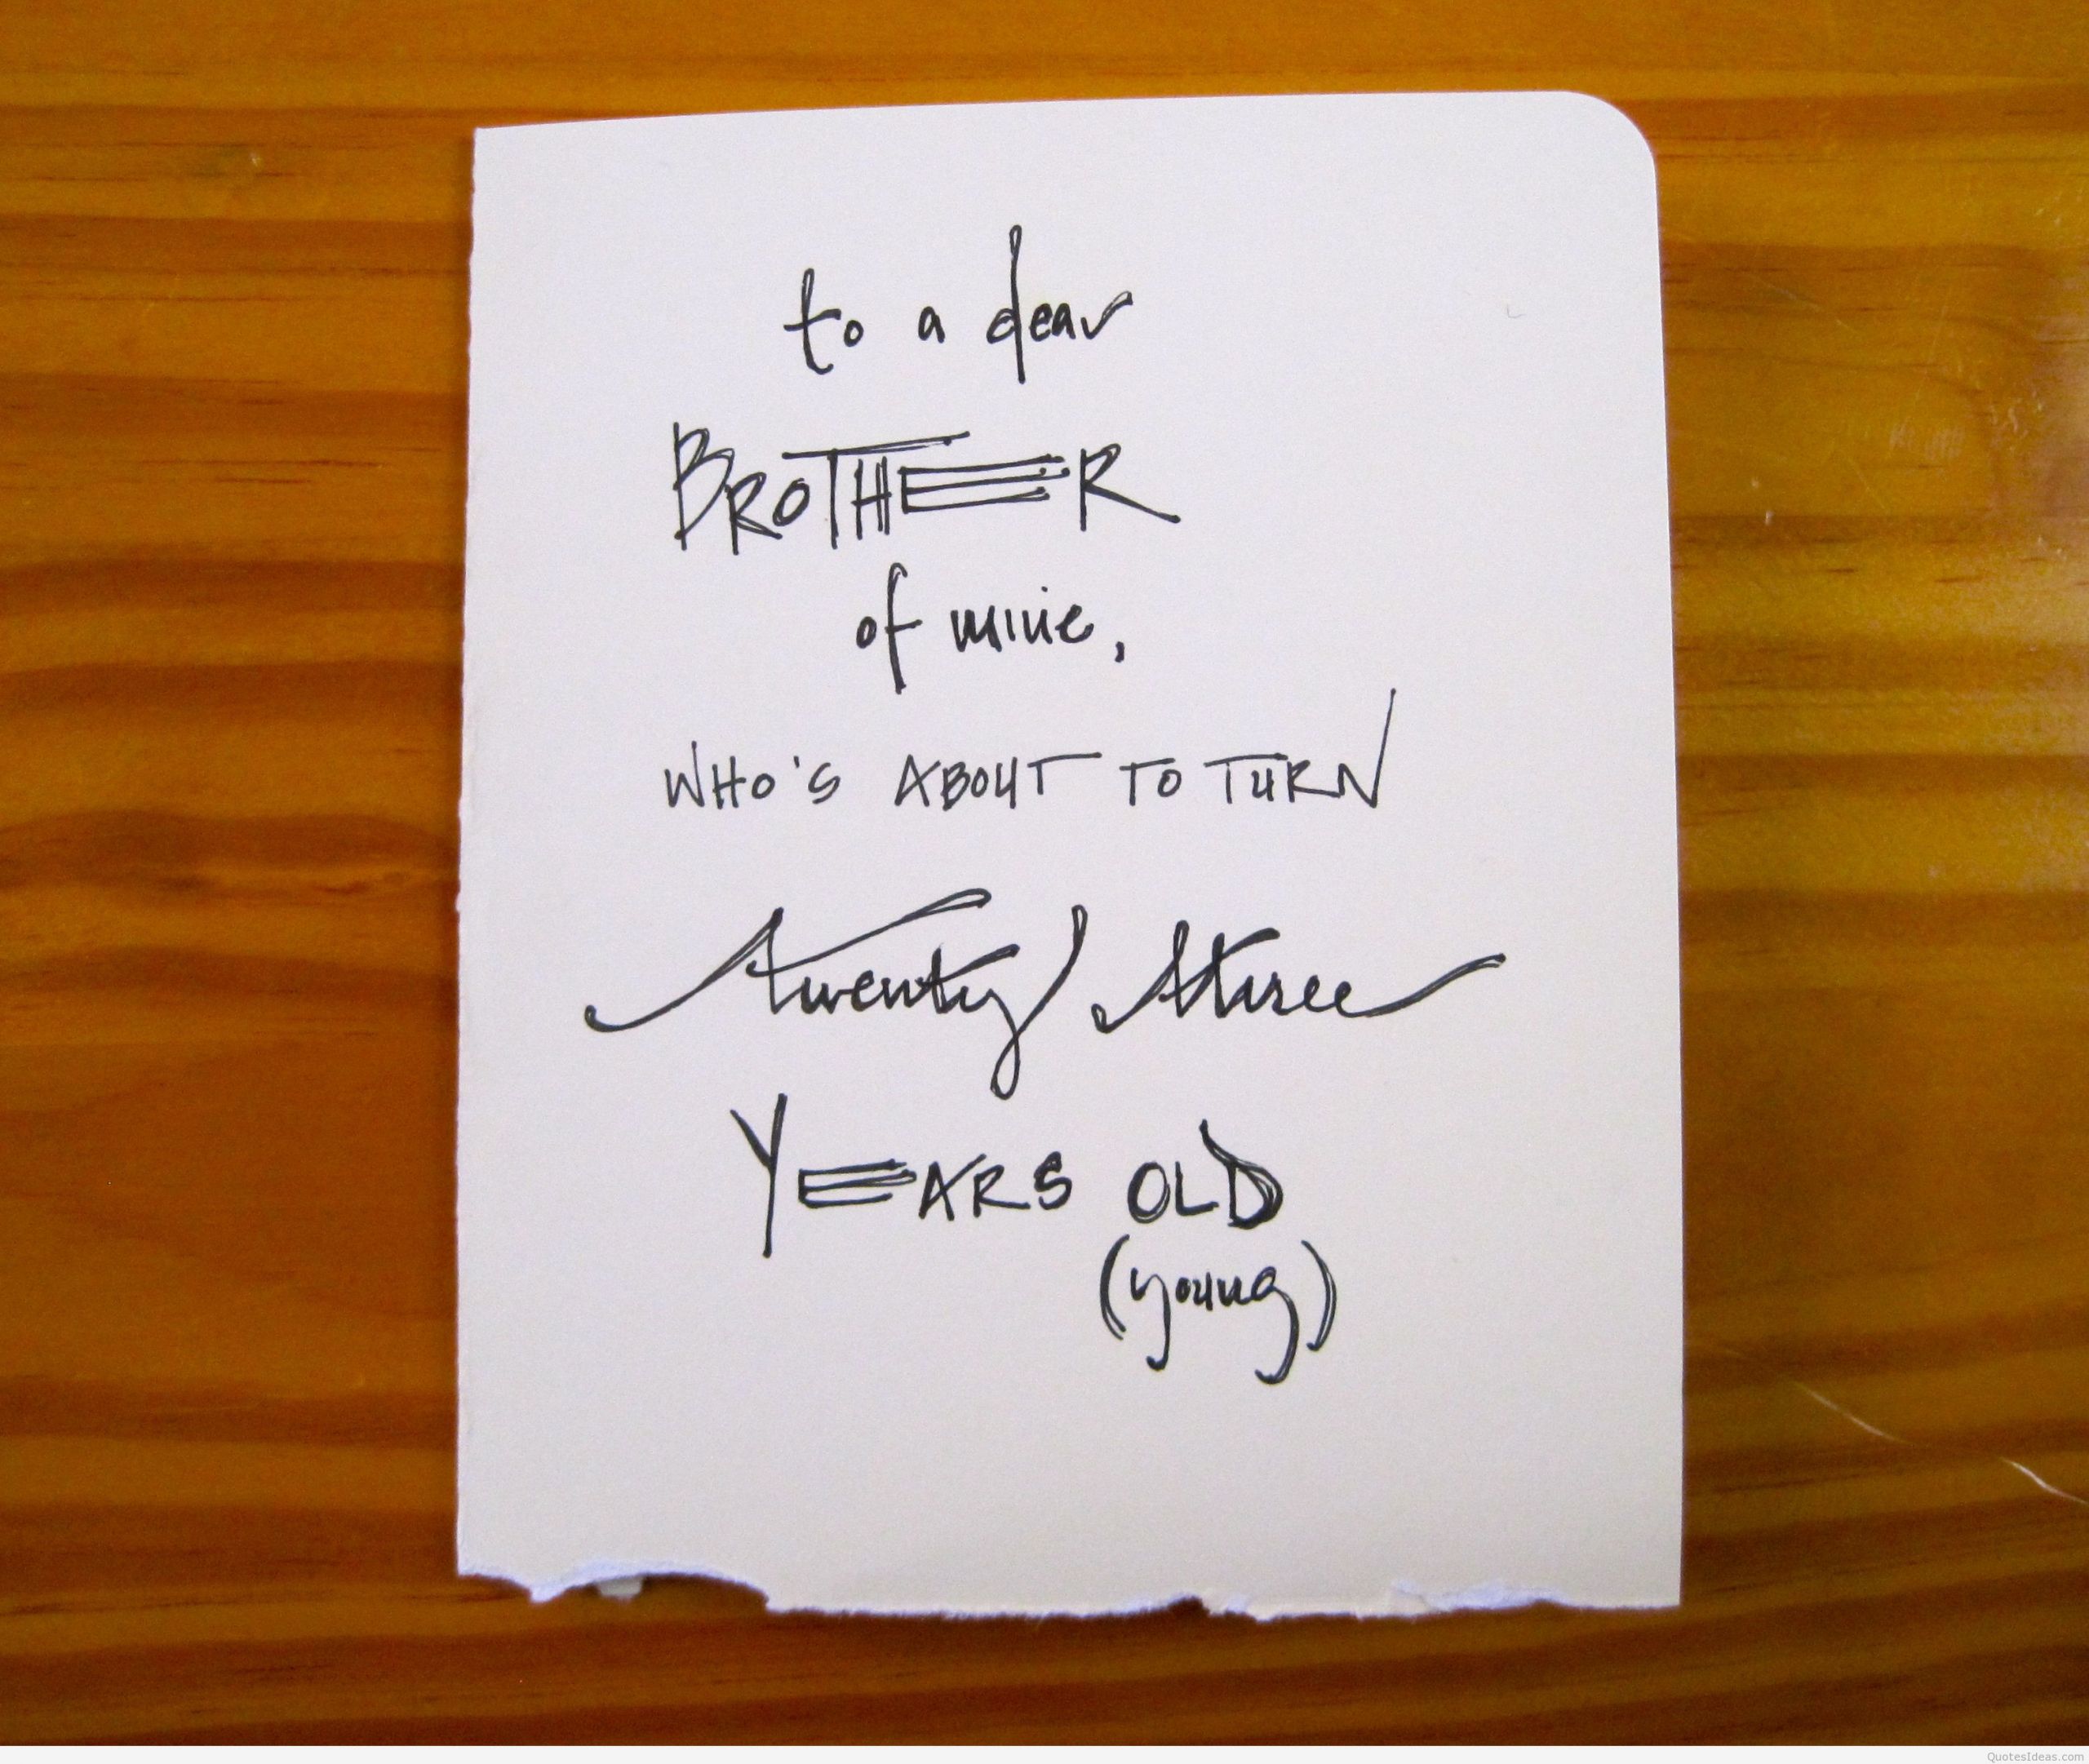 to a dear
BROTHER
of mine,
WHO'S ABOUT TO TURN
twenty three
YEARS OLD
(young)
QuotesIdeas.com